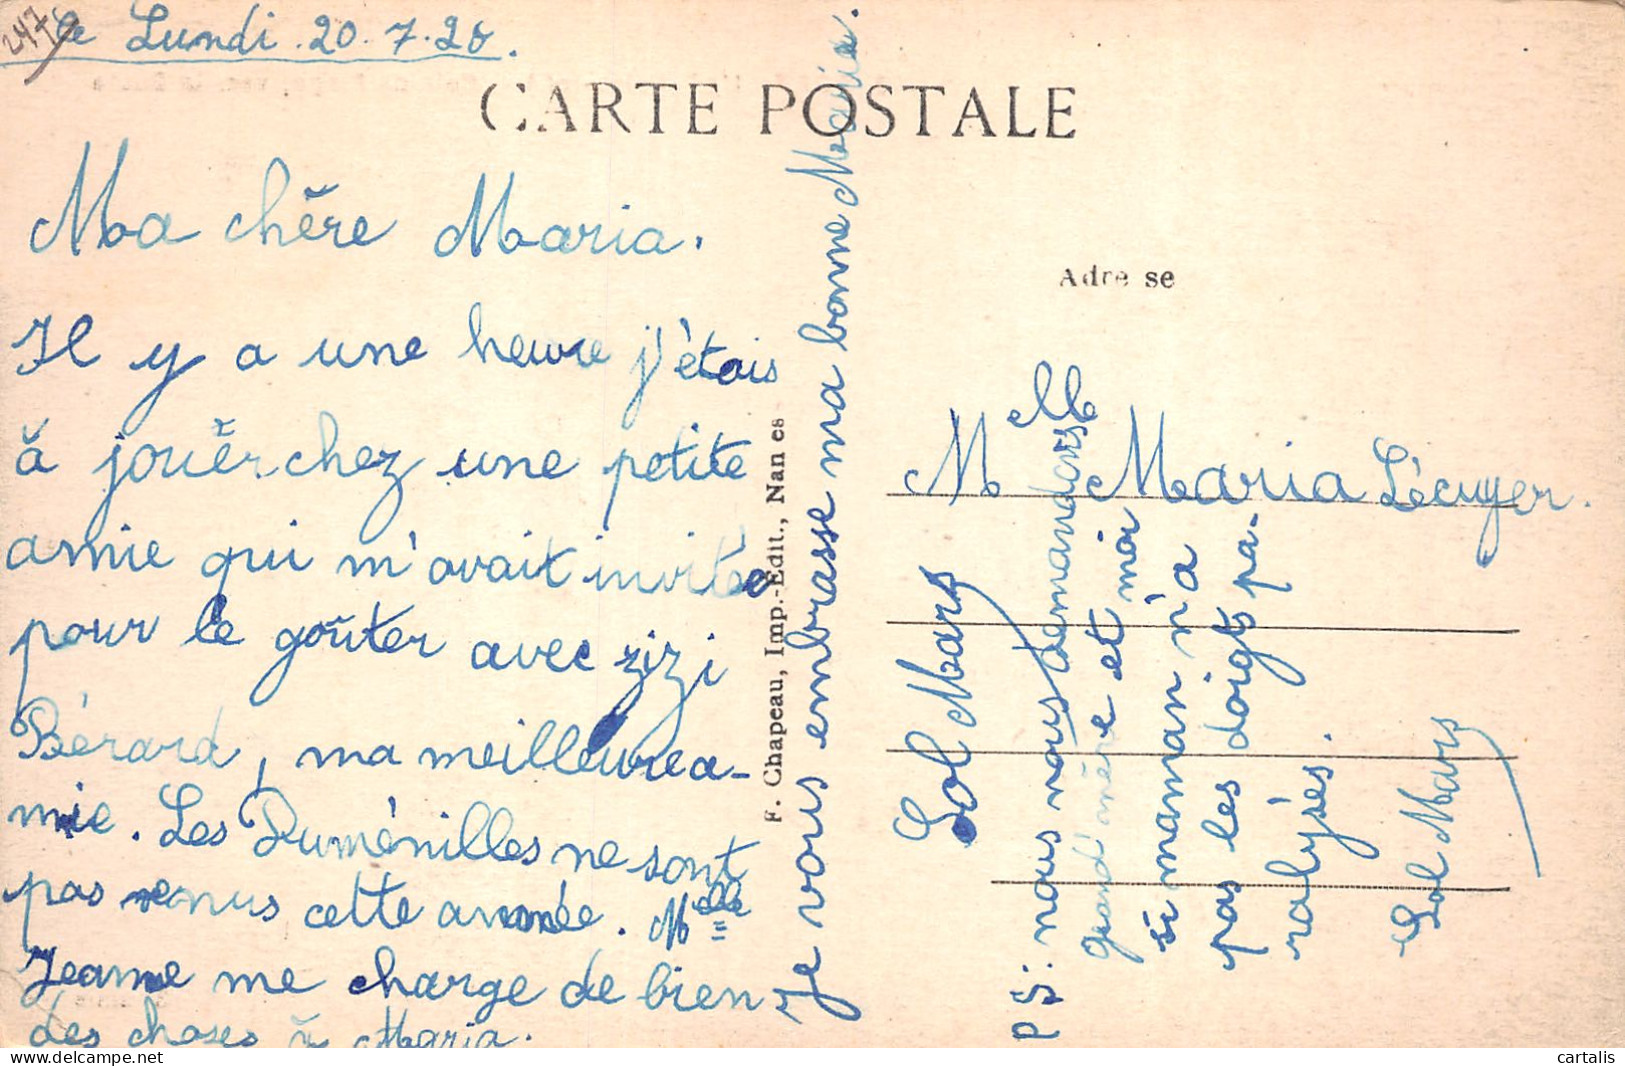 247
le Lundi 20.7.20.
CARTE POSTALE
Ma chère Maria.
Il y a une heure j'étais
à jouer chez une petite
amie qui m'avait invitée
pour le goûter avec zizi
Bérard, ma meilleure a-
mie. Les Duménilles ne sont
pas venus cette année. Melle
Jeanne me charge de bien
des choses à Maria.
je vous embrasse ma bonne Maria.
F. Chapeau, Imp.-Edit., Nan es
Adre se
M M Maria Lécuyer.
Lol Mars
P.S. nous nous demandons
grand'mère et moi
si maman n'a
pas les doigts pa-
ralysés.
Lol Mars
cartalis